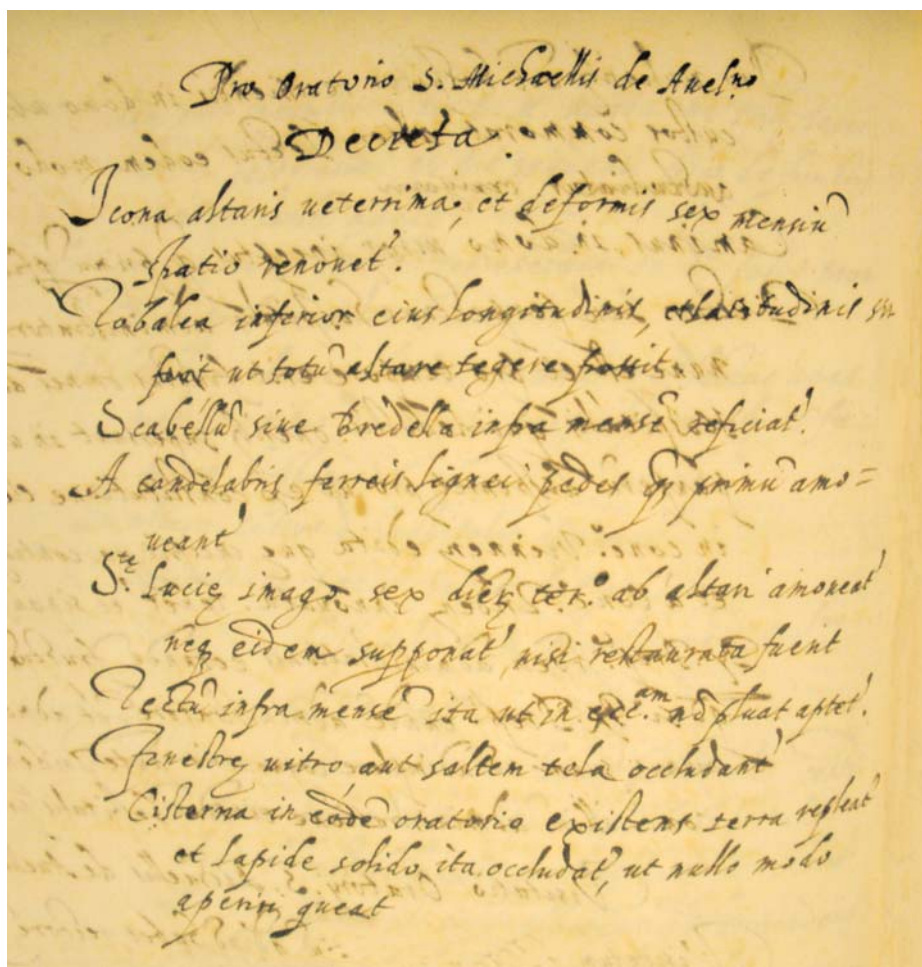 Pro Oratorio S. Michaellis de Auel.no
Decreta.
Icona altaris ueterrima, et deformis sex mensiũ
spatio renouet'.
Tobalea inferior eius longitudinis, et latitudinis
fuerit ut totũ altare tegere possit.
Scabellũ siue Bredella infra mensẽ reficiat'.
A candelabris ferreis lignei pedes q̃ primũ amo=
ueant'
S.tę Lucię imago sex dieȝ ter.o ab altari amoueat'
neq; eidem supponat', nisi restaurata fuerit
Tectũ infra mensẽ ita ut in ecc.am nõ pluat aptet'.
Fenestrę uitro aut saltem tela occludant'
Cisterna in eodẽ oratorio existens terra repleat'
et lapide solido ita occludat', ut nullo modo
aperiri queat